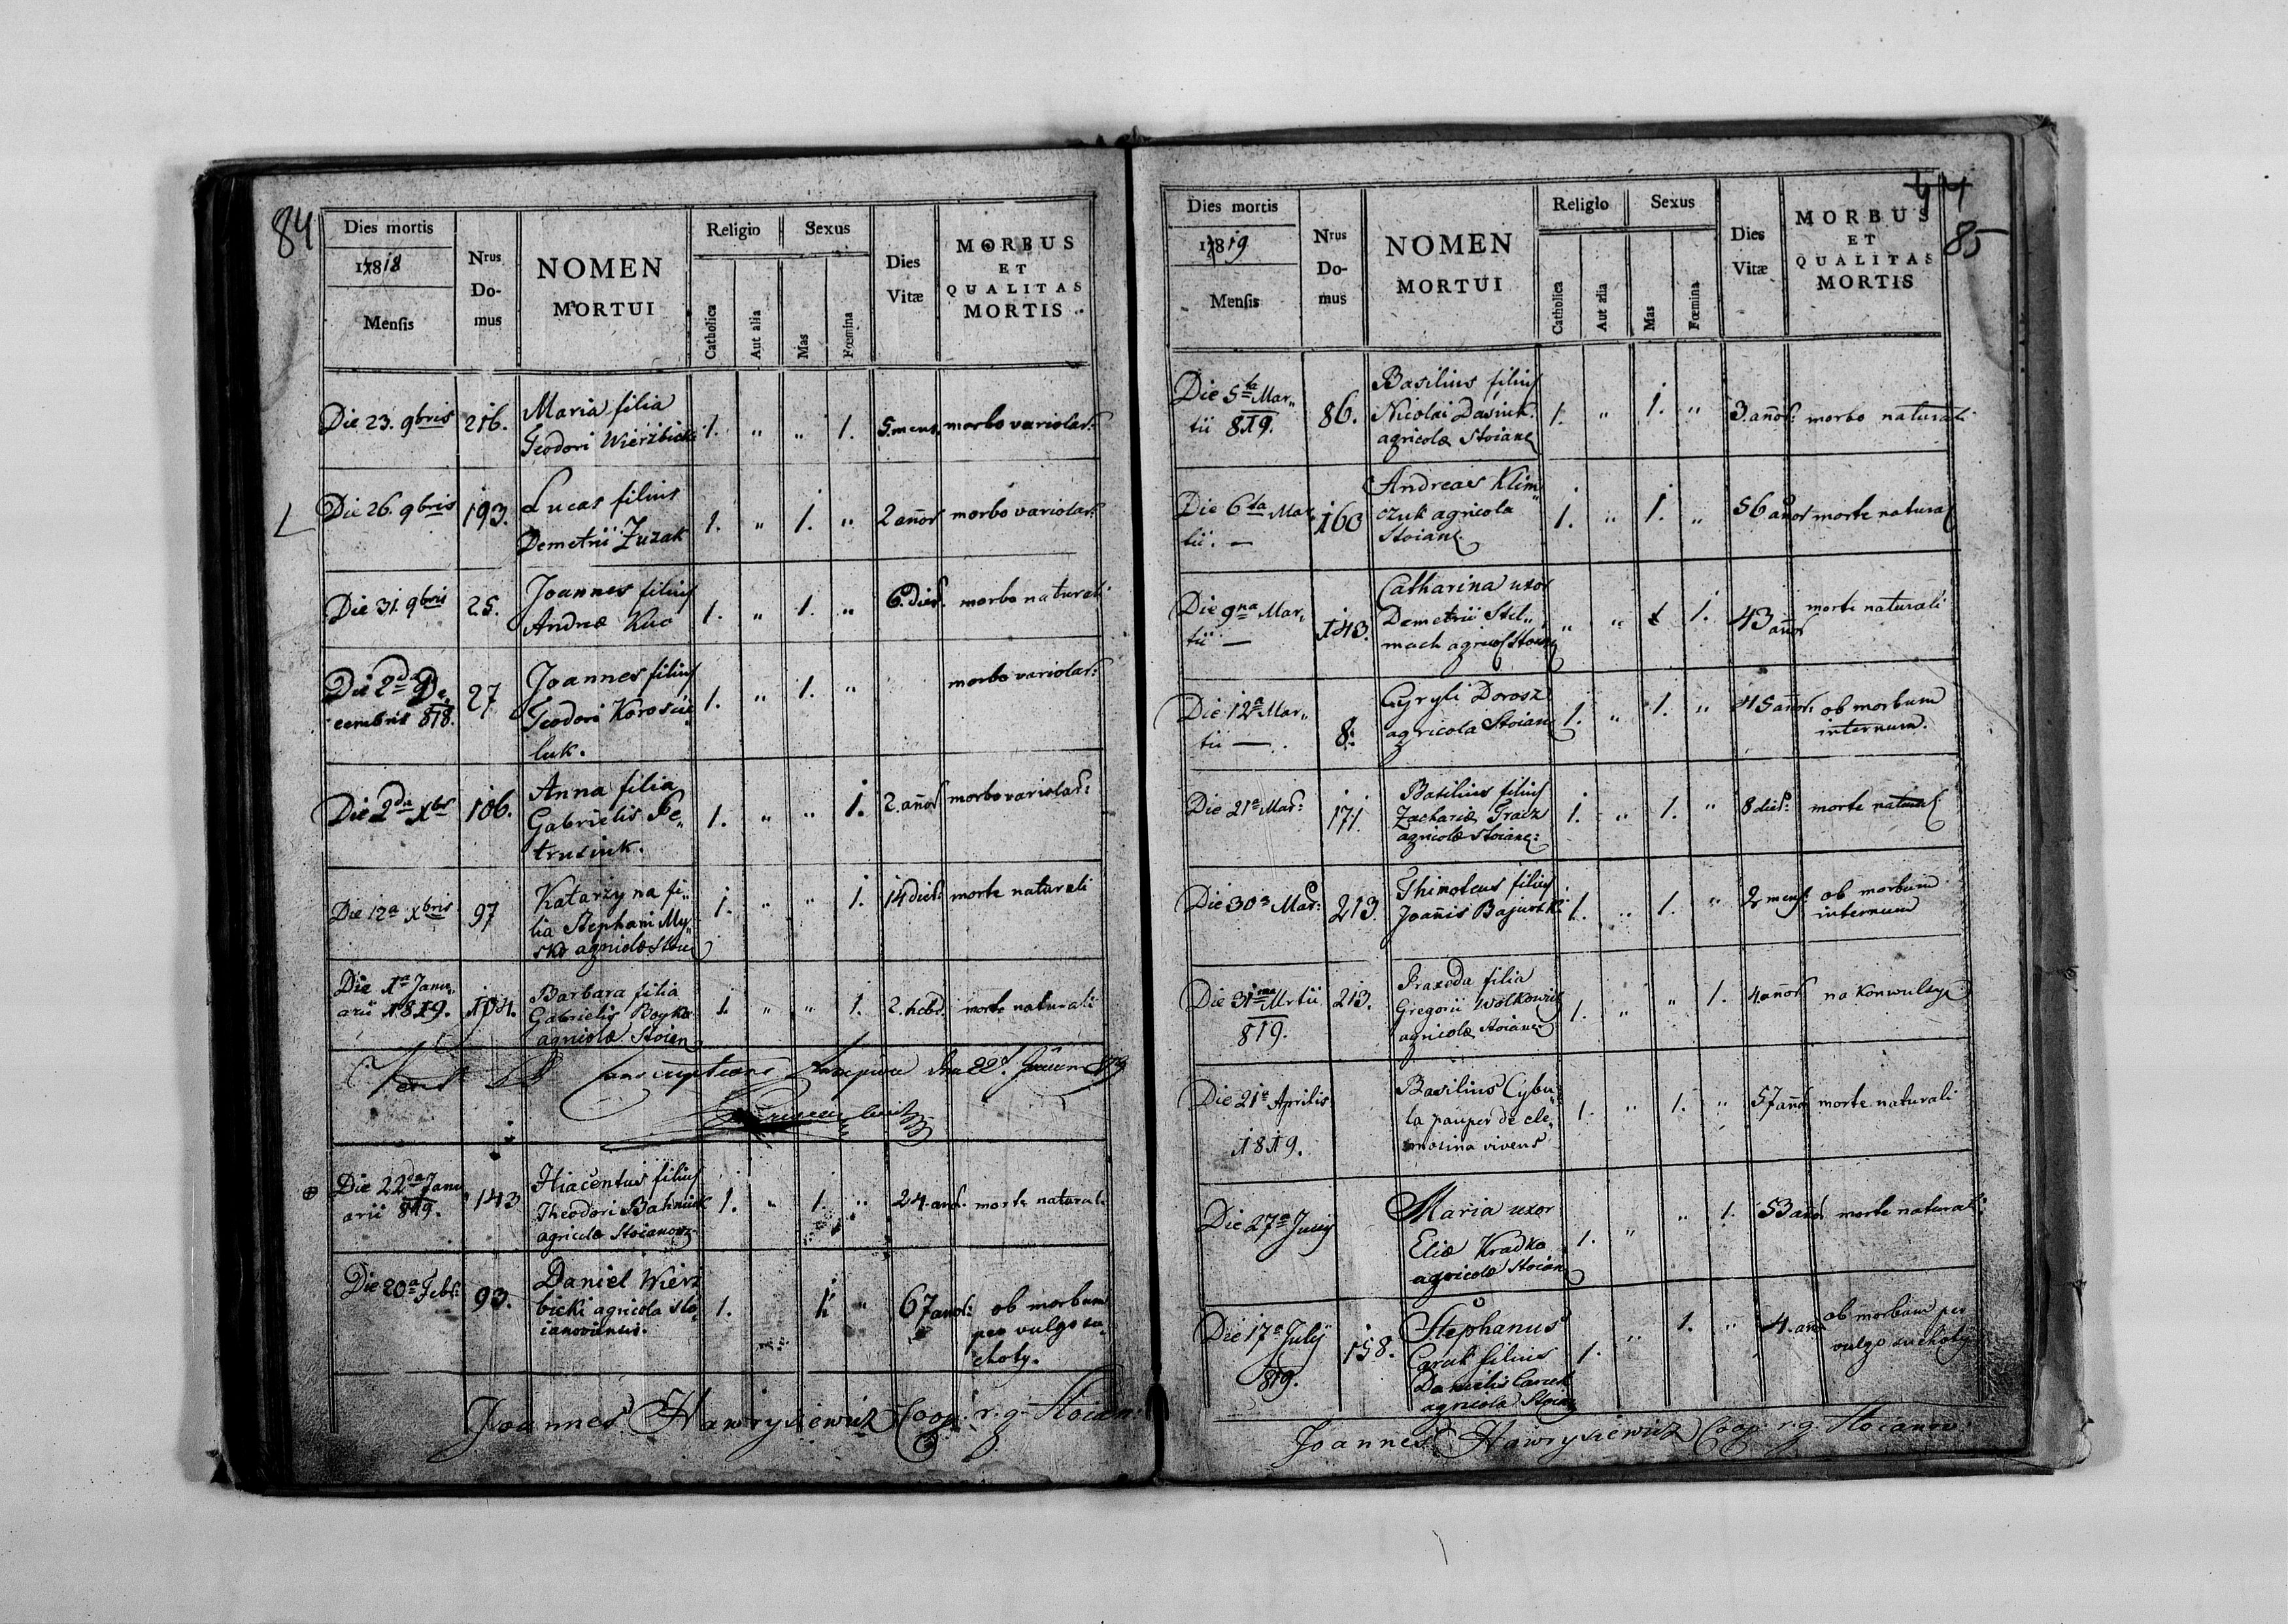 84
Dies mortis
1818
Mensis
Nrus
Do-
mus
NOMEN
MORTUI
Religio
Catholica
Aut alia
Sexus
Mas
Fœmina
Dies
Vitæ
MORBUS
ET
QUALITAS
MORTIS
Die 23. 9bris 216. Maria filia
Teodori Wierzbicki 1. „ „ 1. 5. mens. morbo variolar:
Die 26. 9bris 193. Lucas filius
Demetrii Zuzak 1. „ 1. „ 2 anñor morbo variolar:
Die 31. 9bris 25. Joannes filius
Andreæ Kuc 1. „ 1. „ 6. dier. morbo naturali
Die 2da De„
cembris 818. 27 Joannes filius
Teodori Korosie„
luk. 1. „ 1. „ morbo variolar:
Die 2da Xbr 106. Anna filia
Gabrielis Pe„
trusiuk. 1. „ „ 1. 2. anñor morbo variolar:
Die 12a Xbris 97 Katarzyna fi„
lia Stephani My„
sko agricolæ Stoia 1. „ „ 1. 14 dier: morte naturali
Die 1a Janu„
arii 1819. 104. Barbara filia
Gabrielis Boyko
agricolæ Stoian 1. „ „ 1. 2. hebd. morte naturali
Die 22da Janu
arii 819. 143 Hiacentus filius
Theodori Bahniuk
agricolæ Stoianow 1. „ 1. „ 24. anor. morte naturali
Die 20a Febr: 93. Daniel Wierz
bicki agricola Sto
ianoviensis. 1. 1. „ 67 anor: ob morbum
per vulgo su„
choty.
Joannes Hawrysiewicz Coop: r. g. Stoian:
44
85
Dies mortis
1819
Mensis
Nrus
Do-
mus
NOMEN
MORTUI
Religio
Catholica
Aut alia
Sexus
Mas
Fœmina
Dies
Vitæ
MORBUS
ET
QUALITAS
MORTIS
Die 5ta Mar„
tii 819. 86. Basilius filius
Nicolai Dasiuk
agricolæ Stoian 1. „ 1. „ 3. anñor: morbo naturali
Die 6ta Mar
tii. — 160 Andreas Klim„
czuk agricola
Stoian. 1. „ 1. „ 56 anñor morte natural
Die 9na Mar„
tii — 143. Catharina uxor
Demetrii Stel„
mach agricol Stoian „ „ 1. 43
anñor morte naturali
Die 12a Mar„
tii — 8. Cyryli Dorosz
agricola Stoian 1. „ 1. „ 45 anñor: ob morbum
internum.
Die 21a Mar: 171. Basilius filius
Zachariæ Gracz
agricolæ Stoian: 1. „ 1. „ 8 dier: morte natural
Die 30a Mar: 213. Thimoteus filius
Joañis Bajurski 1. „ 1. „ 2 mens: ob morbum
internum
Die 31ma Mrtii
819. 213. Praxeda filia
Gregorii Wolkowicz
agricolæ Stoian 1. „ „ 1. 4 anñor na Konwulsye
Die 21a Aprilis
1819. Basilius Cybu„
la pauper de ele„
mosina vivens 1. „ 1. „ 57 anñor morte naturali
Die 27a Junij Maria uxor
Eliæ Kradko
agricolæ Stoian 1. „ „ 1. 53 anñor morte naturali
Die 17a Julij
819. 158. Stephanus
Caruk filius
Danielis Caruk
agricola Stoian 1. „ 1. „ 4. anñ ob morbum per
vulgo suchoty
Joannes Hawrysiewicz Coop: r. g. Stoianow: